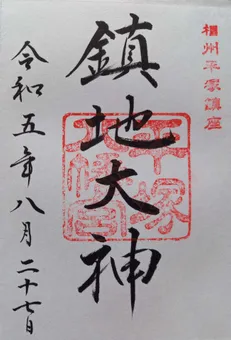 相州平塚鎮座
鎮地大神
平塚八幡宮
令和五年八月二十七日